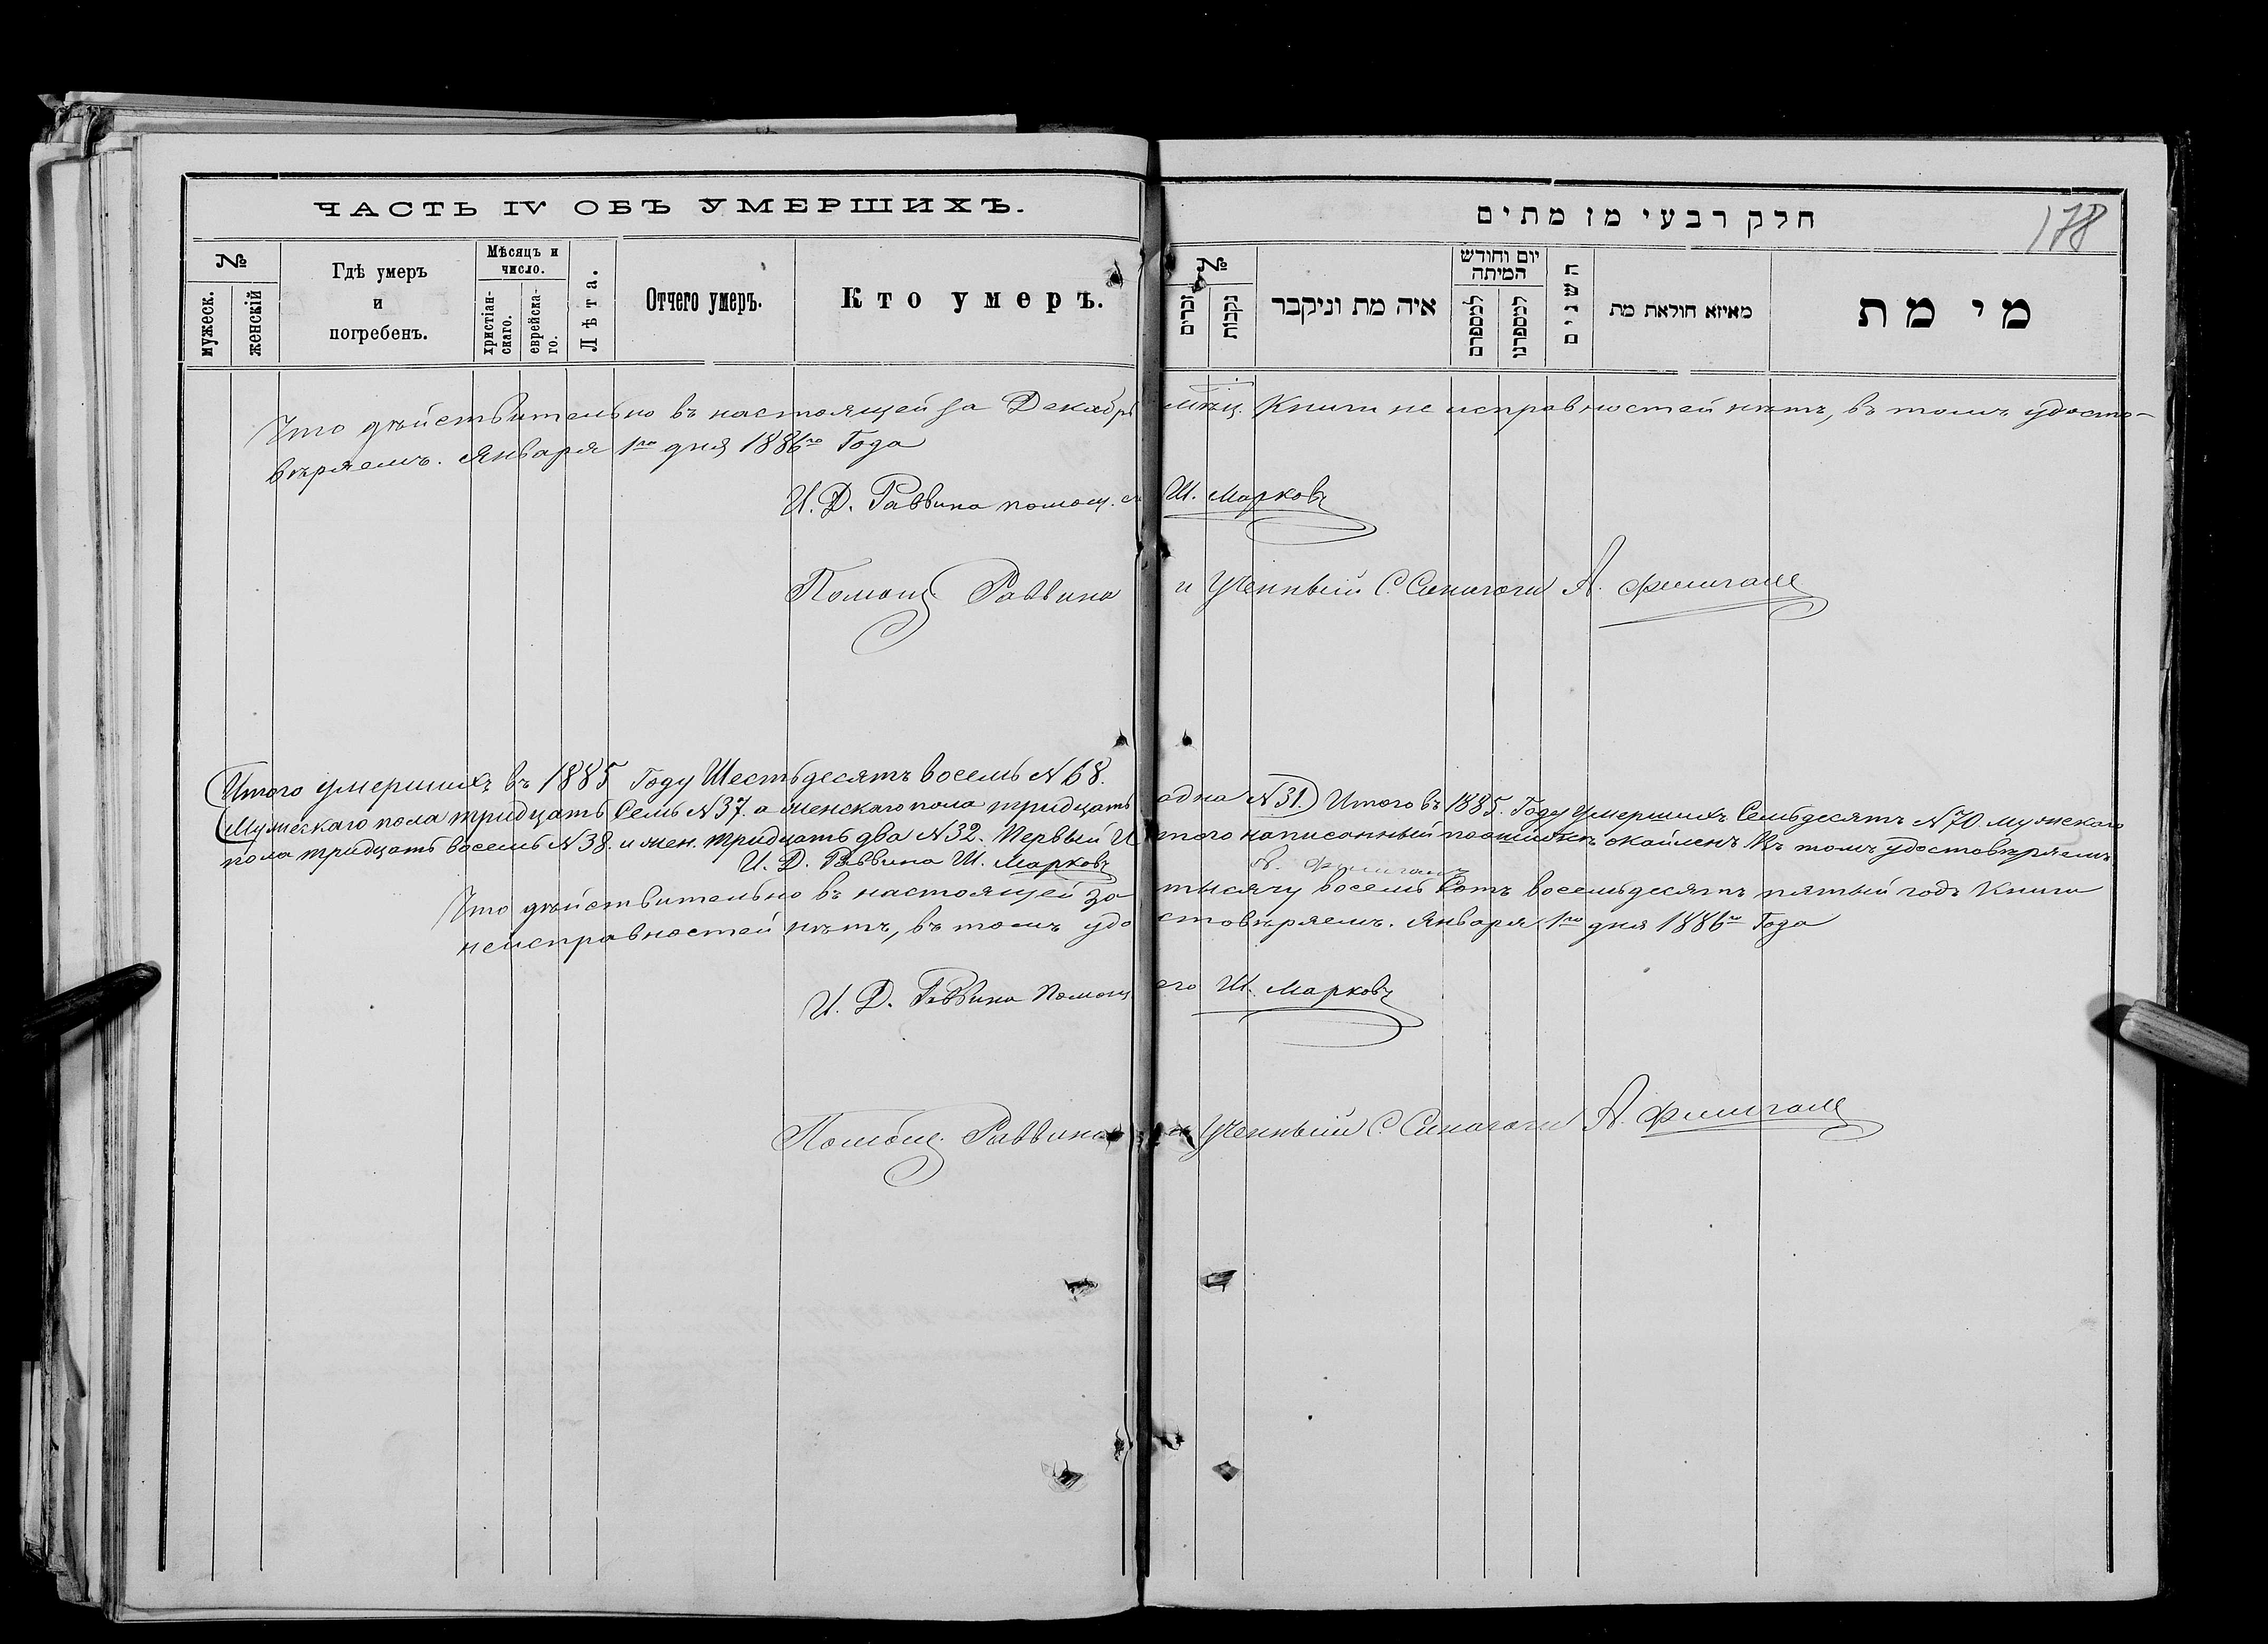 ЧАСТЬ IV ОБЪ УМЕРШИХЪ.
№
мужеск.
женскій
Гдѣ умеръ
и
погребенъ.
Мѣсяцъ и
число.
христіан-
скаго.
еврейска-
го.
Лѣта.
Отчего умеръ.
Кто умеръ.
חלק רבעי מז מתים
178
№
זכרים
נקבות
איה מת וניקבר
יום וחודש
המיתה
למספרם
למספרנו
השנים
מאיזא חולאת מת
מי מת
Что дѣйствительно въ настоящей за Декабрь мѣц. Книги не исправностей нѣтъ, въ томъ удосто-
вѣряемъ. Января 1го дня 1886го Года
И. Д. Раввина помощ. Ш. Марковъ
Помощ. Раввина и Ученный С. Синагоги А.
(Итого умершихъ въ 1885 Году Шестьдесятъ восемь N 68.
Мужескаго пола тридцать Семь N 37. а женскаго пола тридцать одна N 31.) Итого въ 1885. Году Умершихъ Семьдесятъ N 70. мужескаго
пола тридцать восемь N 38. и жен. тридцать два N 32. Первый Итого написанный Въ томъ удостовѣряемъ
И. Д. Раввина Ш. Марковъ
Что дѣйствительно въ настоящей за тысячу восемь Сотъ восемьдесятъ пятый годъ Книги
неисправностей нѣтъ, въ томъ удостовѣряемъ. Января 1го дня 1886го Года
И. Д. Раввина Помощ. его Ш. Марковъ
Помощ. Раввина и Ученный С. Синагоги А.